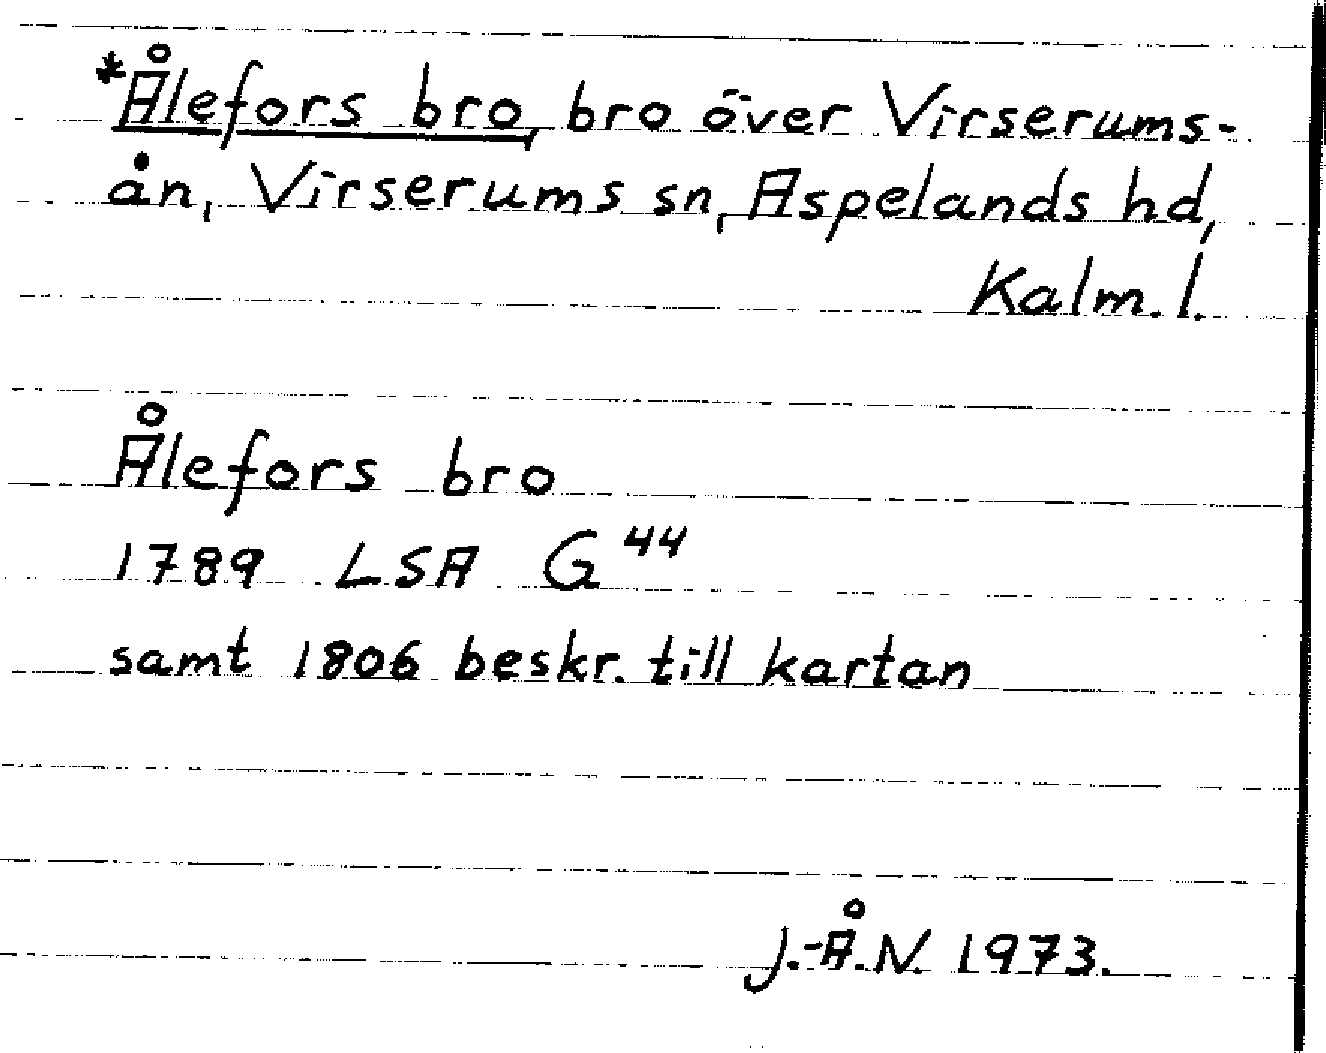 *Ålefors bro, bro över Virserums-
ån, Virserums sn, Aspelands hd,
Kalm. l.
Ålefors bro
1789 LSA G 44
samt 1806 beskr. till kartan
J.-Å.N. 1973.